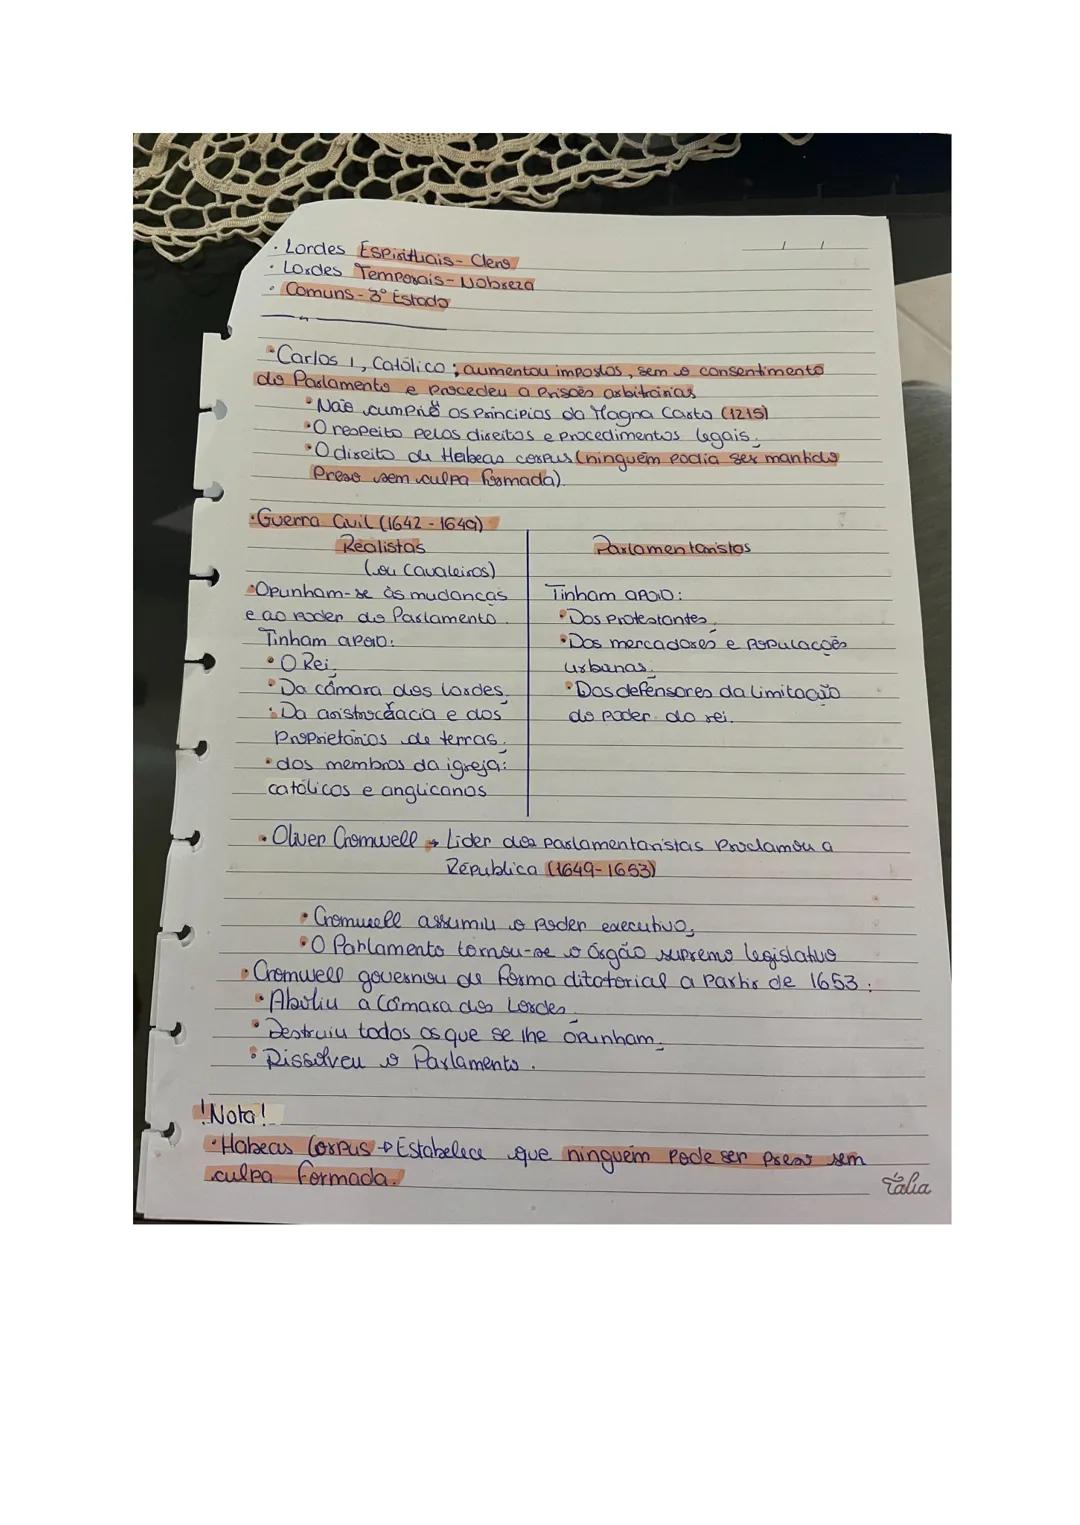 · Lordes Espirituais - Clero
· Lordes Temporais - Nobreza
· Comuns - 3º Estado
· Carlos I, Católico ; aumentou impostos, sem o consentimento
do Parlamento e procedeu a Prisões arbitrárias
· Não cumpriu os Princípios da Magna Carta (1215)
· O respeito pelos direitos e Procedimentos legais;
· O direito de Habeas corpus (ninguém podia ser mantido
Preso sem culpa formada).
· Guerra Civil (1642 - 1649)
Realistas
(ou Cavaleiros)
· Opunham-se às mudanças
e ao poder do Parlamento.
Tinham apoio:
· O Rei;
· Da câmara dos lordes;
· Da aristocracia e dos
Proprietários de terras;
· dos membros da igreja:
católicos e anglicanos
Parlamentaristas
Tinham apoio:
· Dos Protestantes;
· Dos mercadores e Populações
urbanas;
· Dos defensores da limitação
do poder do rei.
· Oliver Cromwell → Lider dos parlamentaristas Proclamou a
República (1649-1653)
· Cromwell assumiu o poder executivo;
· O Parlamento tornou-se o órgão supremo legislativo
· Cromwell governou de forma ditatorial a partir de 1653:
· Aboliu a Câmara dos Lordes;
· Destruiu todos os que se lhe opunham;
· Dissolveu o Parlamento.
! Nota!
· Habeas Corpus → Estabelece que ninguém pode ser preso sem
culpa formada.
Tália